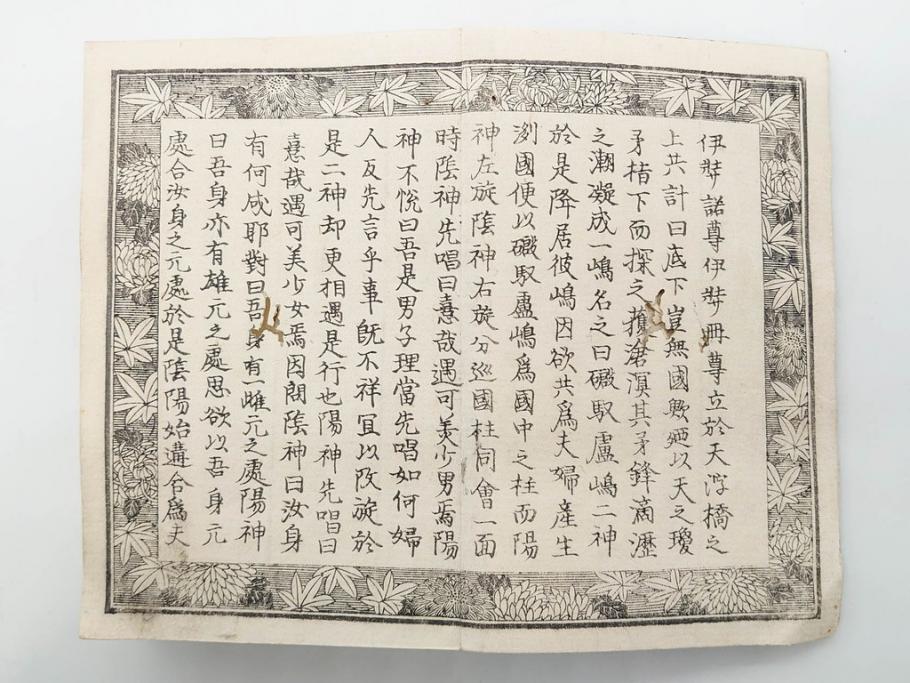 伊弉諾尊伊弉冊尊立於天浮橋之
上共計曰底下豈無國歟廼以天之瓊
矛指下而探之獲滄溟其矛鋒滴瀝
之潮凝成一嶋名之曰磤馭盧嶋二神
於是降居彼嶋因欲共爲夫婦產生
洲國便以磤馭盧嶋爲國中之柱而陽
神左旋陰神右旋分巡國柱同會一面
時陰神先唱曰憙哉遇可美少男焉陽
神不悅曰吾是男子理當先唱如何婦
人反先言乎事旣不祥宜以改旋於
是二神却更相遇是行也陽神先唱曰
憙哉遇可美少女焉因問陰神曰汝身
有何成耶對曰吾身有一雌元之處陽神
曰吾身亦有雄元之處思欲以吾身元
處合汝身之元處於是陰陽始遘合爲夫